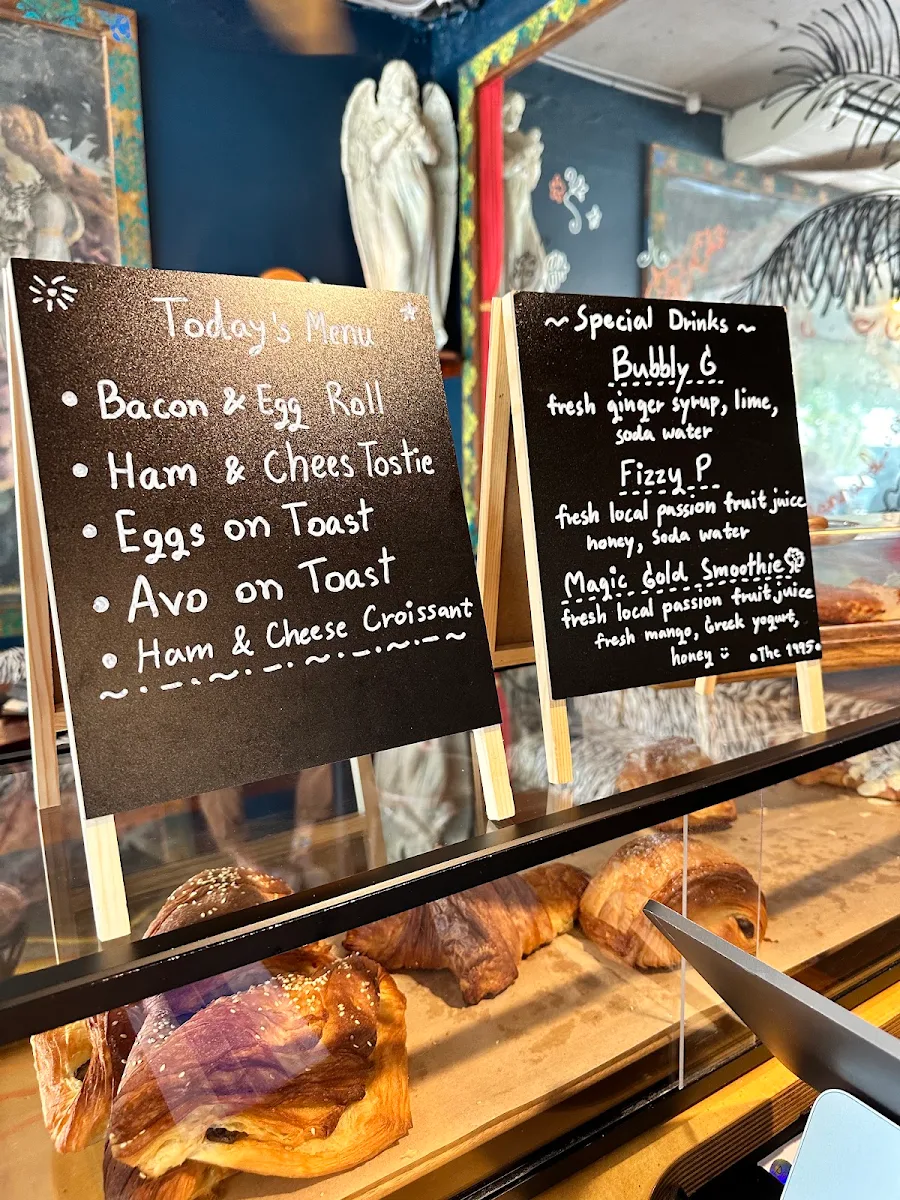 Today's Menu
• Bacon & Egg Roll
• Ham & Chees Tostie
• Eggs on Toast
• Avo on Toast
• Ham & Cheese Croissant
~ Special Drinks ~
Bubbly G
fresh ginger syrup, lime,
soda water
Fizzy P
fresh local passion fruit juice
honey, soda water
Magic Gold Smoothie
fresh local passion fruit juice
fresh mango, Greek yogurt,
honey
• The 1995 •